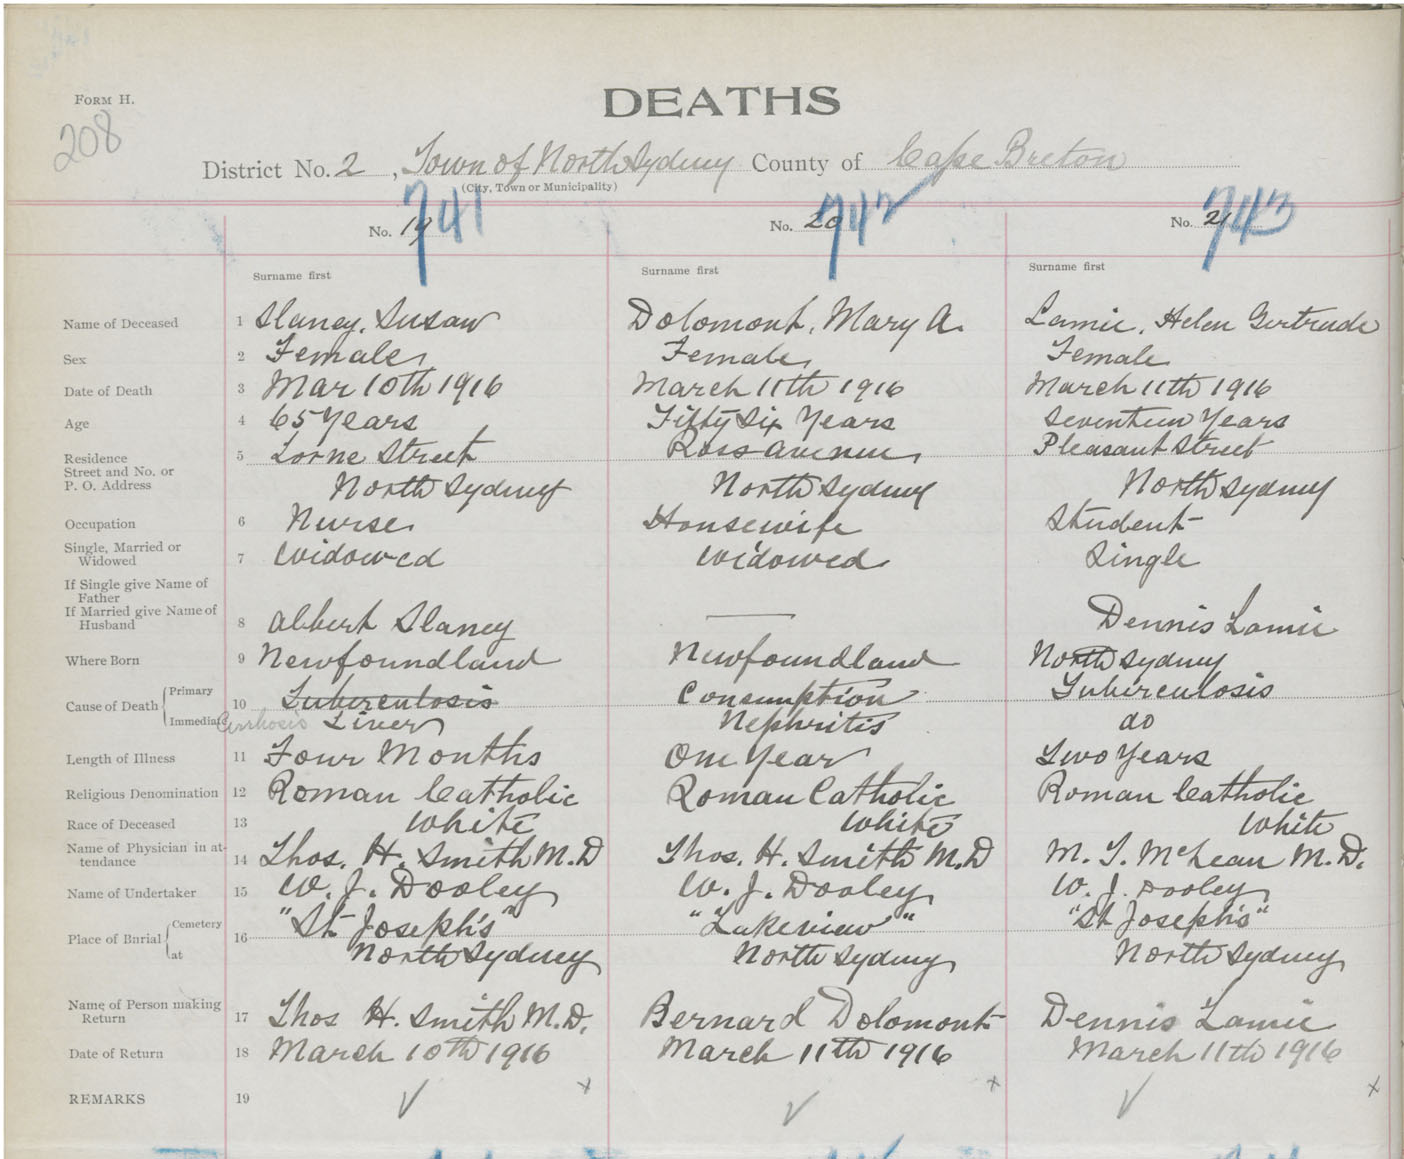 FORM H.
208
DEATHS
District No. 2, Town of North Sydney County of Cape Breton
(City, Town or Municipality)
No. 19 741 No. 20 742 No. 21 743
Surname first Surname first Surname first
Name of Deceased 1 Slaney, Susan Dolomont, Mary A. Lamie, Helen Gertrude
Sex 2 Female Female Female
Date of Death 3 Mar 10th 1916 March 11th 1916 March 11th 1916
Age 4 65 Years Fifty Six Years Seventeen Years
Residence 5 Lorne Street Ross Avenue Pleasant Street
Street and No. or
P. O. Address North Sydney North Sydney North Sydney
Occupation 6 Nurse Housewife Student
Single, Married or
Widowed 7 Widowed Widowed Single
If Single give Name of
Father
If Married give Name of
Husband 8 Albert Slaney — Dennis Lamie
Where Born 9 Newfoundland Newfoundland North Sydney
Cause of Death Primary 10 Tuberculosis Consumption Tuberculosis
Immediate Cirrhosis Liver Nephritis do
Length of Illness 11 Four Months One Year Two Years
Religious Denomination 12 Roman Catholic Roman Catholic Roman Catholic
Race of Deceased 13 White White White
Name of Physician in at-
tendance 14 Thos. H. Smith M.D Thos. H. Smith M.D M. T. McLean M.D.
Name of Undertaker 15 W. J. Dooley W. J. Dooley W. J. Dooley
Place of Burial Cemetery 16 "St Joseph's" "Lakeview" "St Joseph's"
at North Sydney North Sydney North Sydney
Name of Person making
Return 17 Thos H. Smith M.D. Bernard Dolomont Dennis Lamie
Date of Return 18 March 10th 1916 March 11th 1916 March 11th 1916
REMARKS 19 ✓ x ✓ x ✓ x